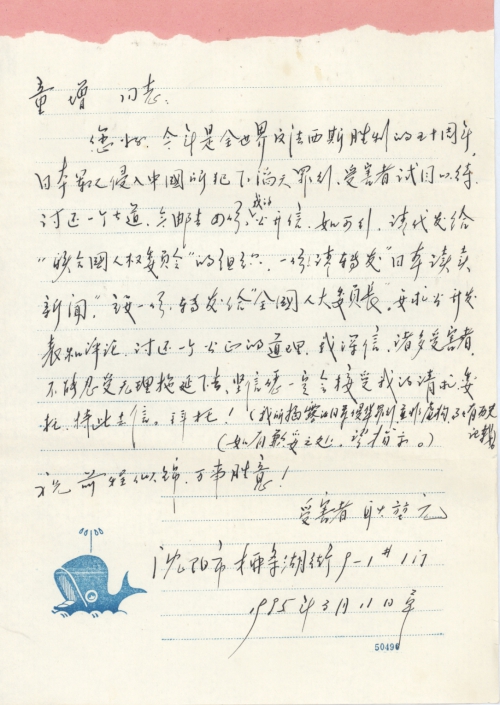 童增 同志:
您好、今年是全世界反法西斯胜利的五十周年,
日本军人侵入中國所犯下滔天罪行、受害者试目以待
讨还一个公道、今邮去四份我的公开信、如可行、请代发给
"联合國人权委员会"的组织、一份请转发"日本读卖
新闻"、交一份、转发给"全國人大委員長"、要求公开发
表和评论、讨还一个公正的道理、我深信、诸多受害者
不能忍受无理拖延下去、坚信您一定会接受我的请求委
托、特此去信。拜托!(我所揭露的日军侵华罪行并非虚构、有历史
记载)
(如有欠妥之处、望指示。)
祝前程似锦、万事胜意!
受害者 耿
沈阳市 湖街9-1# 117
1995年3月11日草
50490